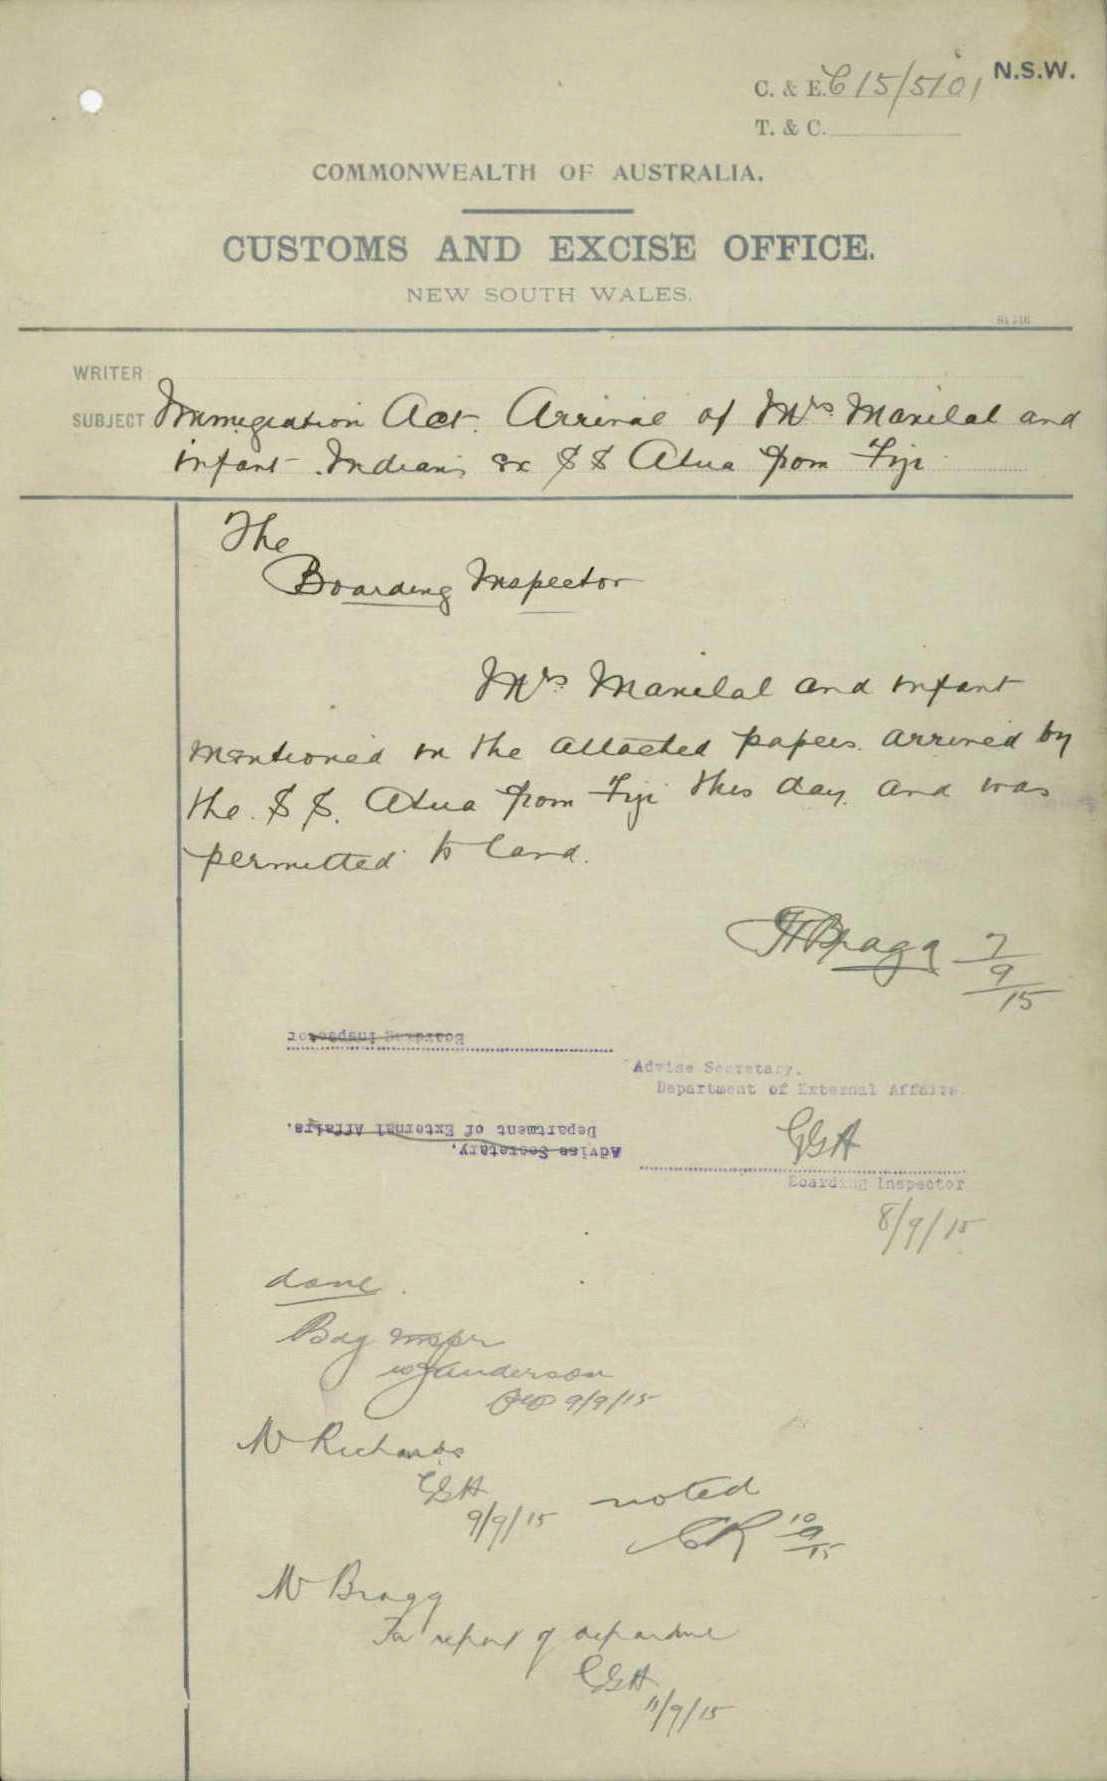 N.S.W.
C. & E. C15/5101
T. & C.
COMMONWEALTH OF AUSTRALIA.
CUSTOMS AND EXCISE OFFICE.
NEW SOUTH WALES.
WRITER
SUBJECT Immigration Act. Arrival of Mrs Manilal and
infant Indians ex S S Atua from Fiji
The
Boarding Inspector
Mrs Manilal and infant
mentioned in the attached papers arrived by
the S S. Atua from Fiji this day and was
permitted to land.
Bragg 7/9/15
Boarding Inspector
Advise Secretary.
Department of External Affairs.
Advise Secretary,
Department of External Affairs.
GGH
Boarding Inspector
8/9/15
done
Bdg Inspr
Janderson
9/9/15
Mr Richards
GGH
9/9/15
noted
CR 10/9/15
Mr Bragg
For report of departure
GGH
11/9/15